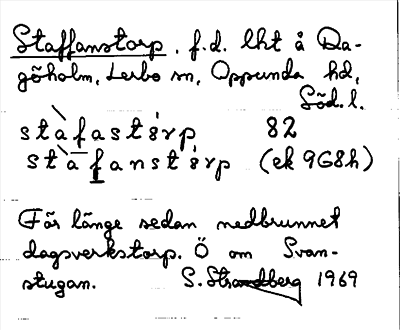 Staffanstorp. f.d. lht å Da-
göholm, Lerbo sn, Oppunda hd,
Söd. l.
stàfastórp 82
stàfanstórp (ek 9G8h)
För länge sedan nedbrunnet
dagsverkstorp. Ö om Svan-
stugan. S. Strandberg 1969